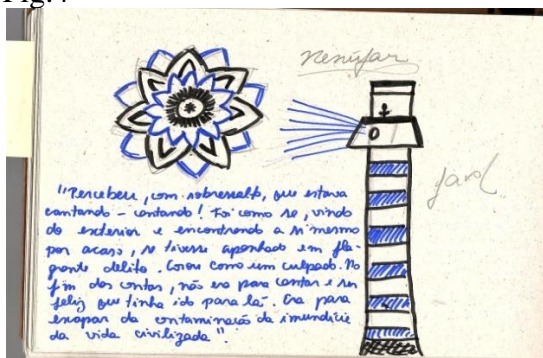 Fig.4
nenúfar
farol
"Percebeu, com sobressalto, que estava
cantando – cantando! Foi como se, vindo
do exterior e encontrando a si mesmo
por acaso, se tivesse apanhado em fla-
grante delito. Corou como um culpado. No
fim das contas, não era para cantar e ser
feliz que tinha ido para lá. Era para
escapar da contaminação da imundície
da vida civilizada".